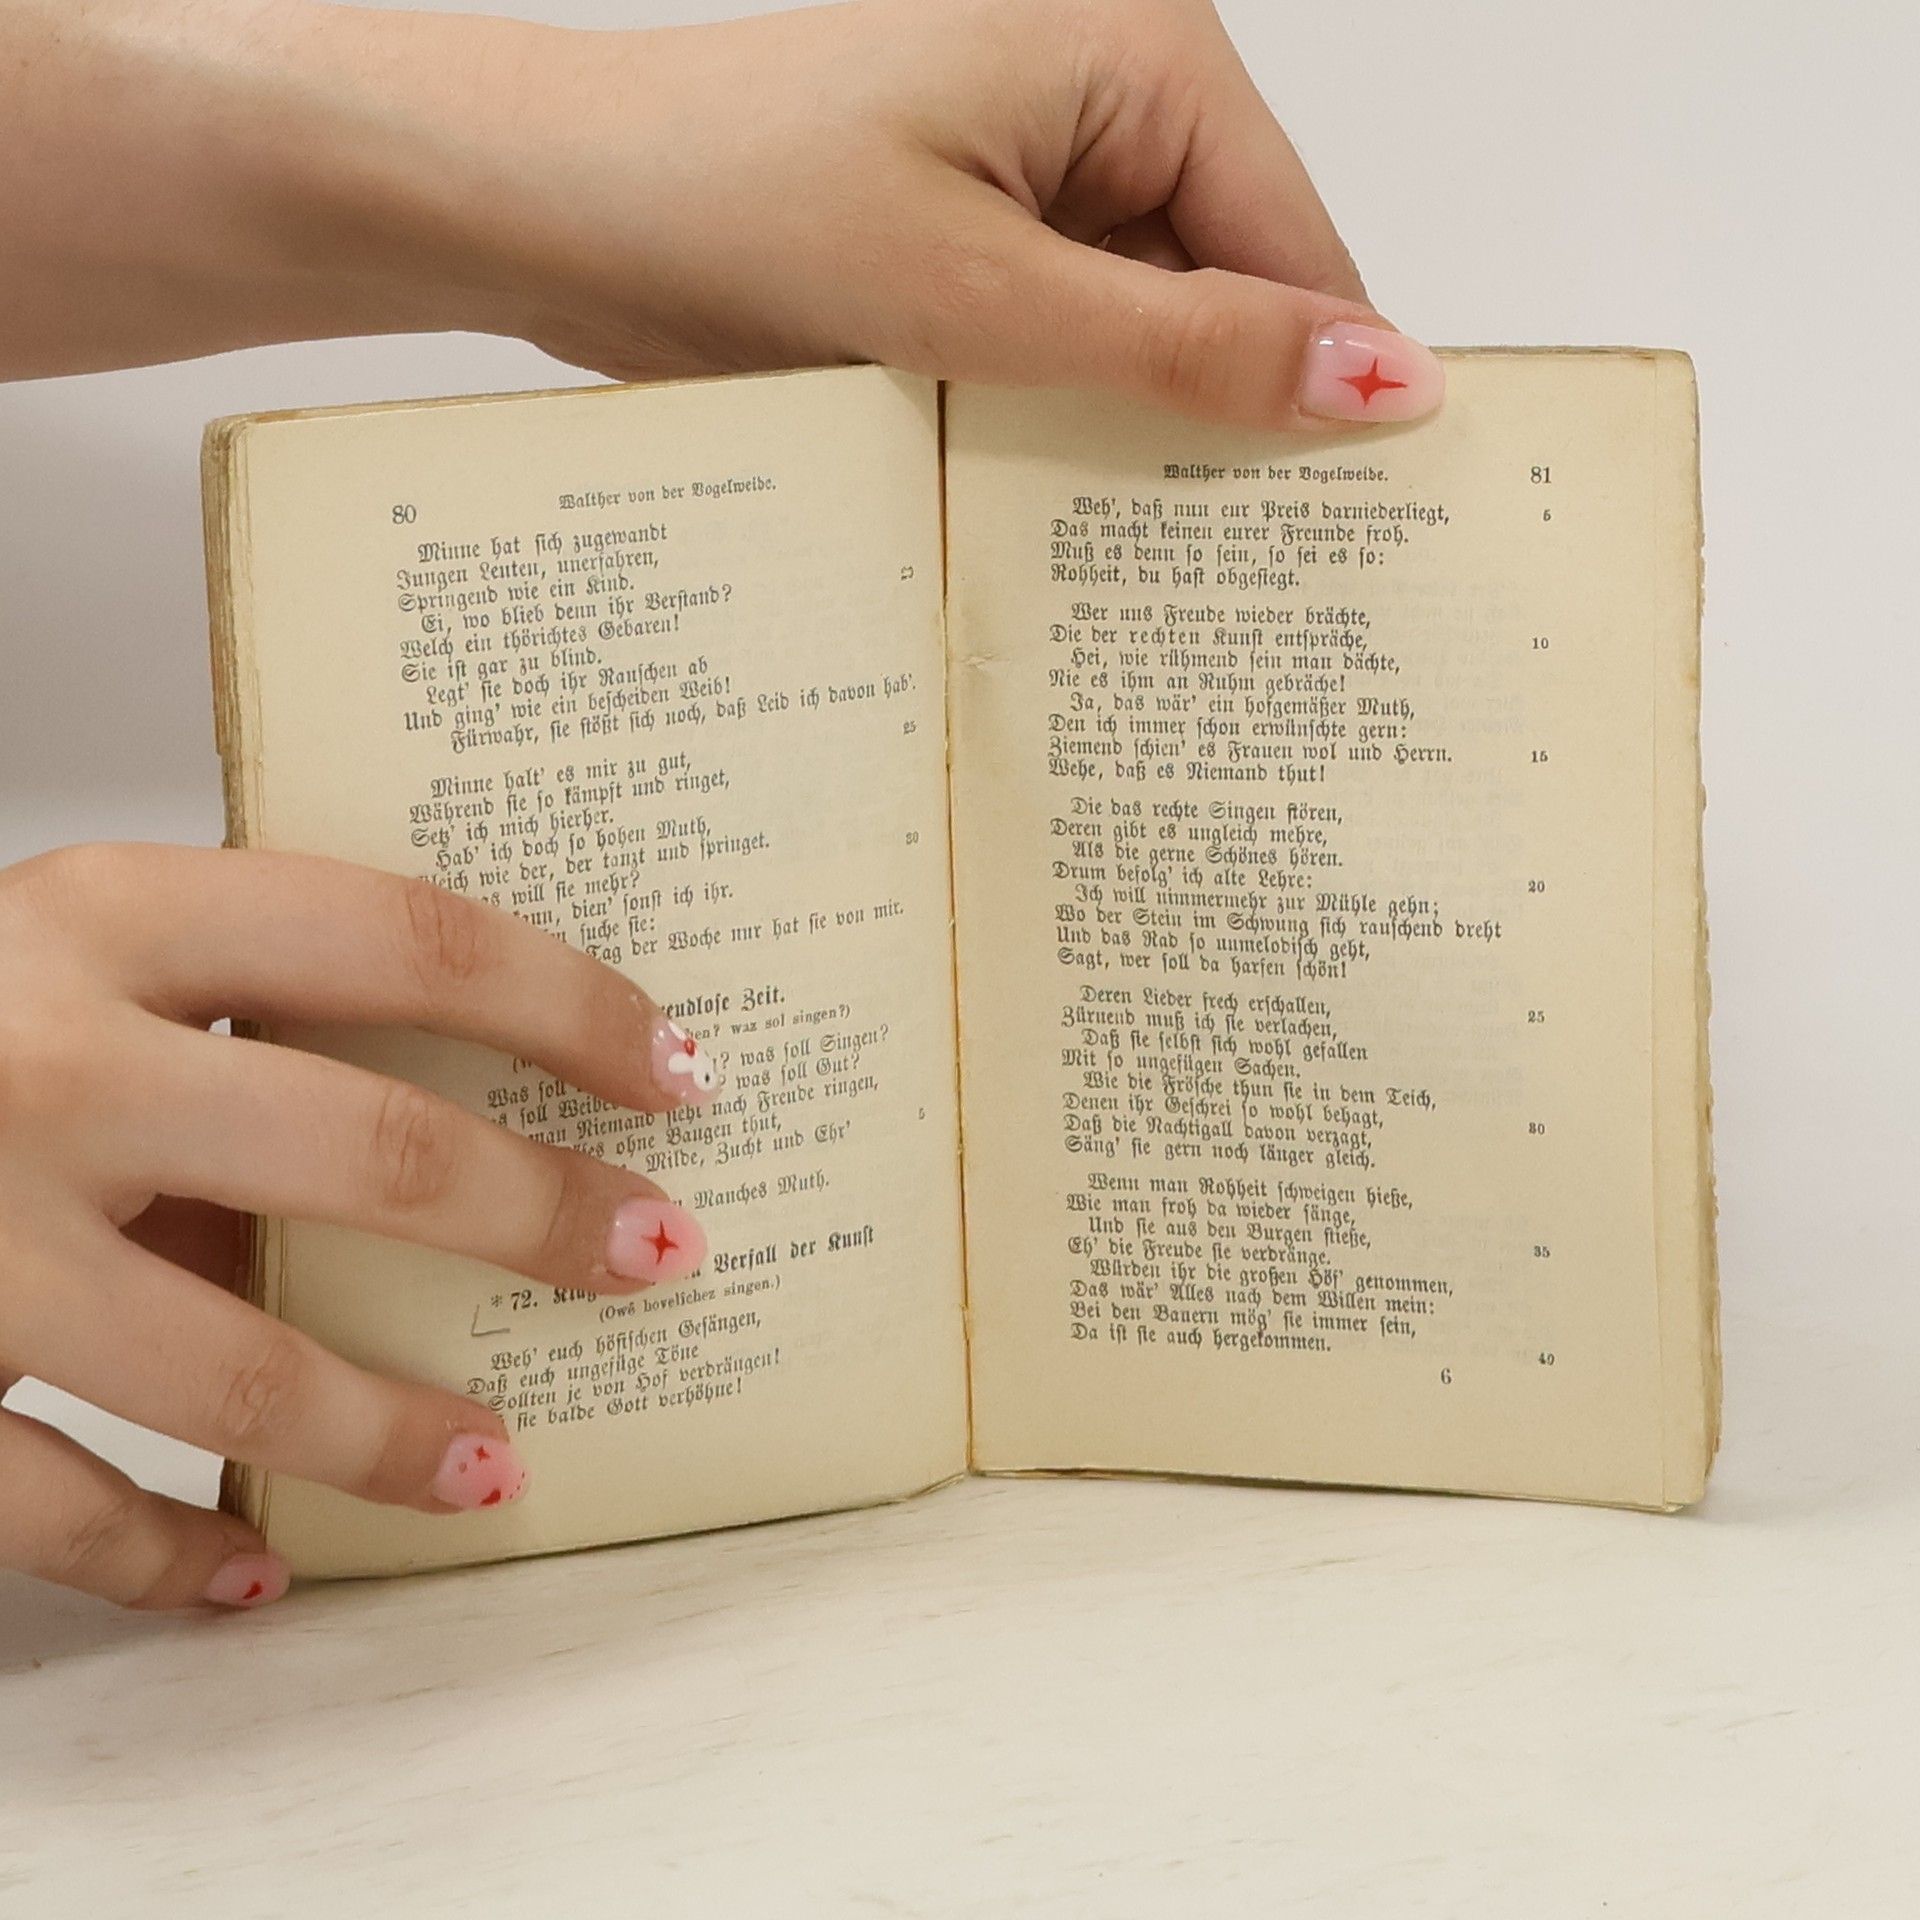 80 Walther von der Vogelweide.
Minne hat sich zugewandt
Jungen Leuten, unerfahren,
Springend wie ein Kind.
Ei, wo blieb denn ihr Verstand?
Welch ein thörichtes Gebaren!
Sie ist gar zu blind.
Legt' sie doch ihr Rauschen ab
Und ging' wie ein bescheiden Weib!
Fürwahr, sie stößt sich noch, daß Leid ich davon hab'.
25
Minne halt' es mir zu gut,
Während sie so kämpft und ringet,
Setz' ich mich hierher.
Hab' ich doch so hohen Muth,
Gleich wie der, der tanzt und springet.
30
will sie mehr?
dien' sonst ich ihr.
suche sie:
Tag der Woche nur hat sie von mir.
Zeit.
waz sol singen?)
was soll Singen?
Was soll was soll Gut?
soll
man Niemand sieht nach Freude ringen,
ohne Bangen thut,
5
Milde, Zucht und Ehr'
Manches Muth.
*72. Verfall der Kunst
(Owê hovelîchez singen.)
Weh' euch höfischen Gesängen,
Daß euch ungefüge Töne
Sollten je von Hof verdrängen!
sie balde Gott verhöhne!
Walther von der Vogelweide. 81
Weh', daß nun eur Preis darniederliegt, 5
Das macht keinen eurer Freunde froh.
Muß es denn so sein, so sei es so:
Rohheit, du hast obgesiegt.
Wer uns Freude wieder brächte,
Die der rechten Kunst entspräche, 10
Hei, wie rühmend sein man dächte,
Nie es ihm an Ruhm gebräche!
Ja, das wär' ein hofgemäßer Muth,
Den ich immer schon erwünschte gern:
Ziemend schien' es Frauen wol und Herrn. 15
Wehe, daß es Niemand thut!
Die das rechte Singen stören,
Deren gibt es ungleich mehre,
Als die gerne Schönes hören.
Drum befolg' ich alte Lehre: 20
Ich will nimmermehr zur Mühle gehn;
Wo der Stein im Schwung sich rauschend dreht
Und das Rad so unmelodisch geht,
Sagt, wer soll da harfen schön!
Deren Lieder frech erschallen,
Zürnend muß ich sie verlachen, 25
Daß sie selbst sich wohl gefallen
Mit so ungefügen Sachen.
Wie die Frösche thun sie in dem Teich,
Denen ihr Geschrei so wohl behagt,
Daß die Nachtigall davon verzagt, 30
Säng' sie gern noch länger gleich.
Wenn man Rohheit schweigen hieße,
Wie man froh da wieder sänge,
Und sie aus den Burgen stieße,
Eh' die Freude sie verdränge. 35
Würden ihr die großen Höf' genommen,
Das wär' Alles nach dem Willen mein:
Bei den Bauern mög' sie immer sein,
Da ist sie auch hergekommen.
40
6